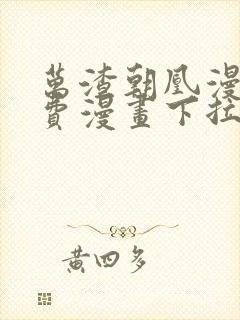 萬渣朝凰漫
費漫畫下拉
黃四多